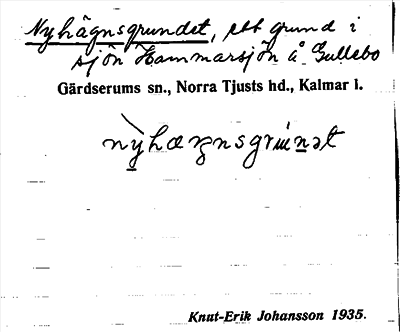 Nyhägnsgrundet, ett grund i
sjön Hammarsjön å Gullebo
Gärdserums sn., Norra Tjusts hd., Kalmar l.
Knut-Erik Johansson 1935.